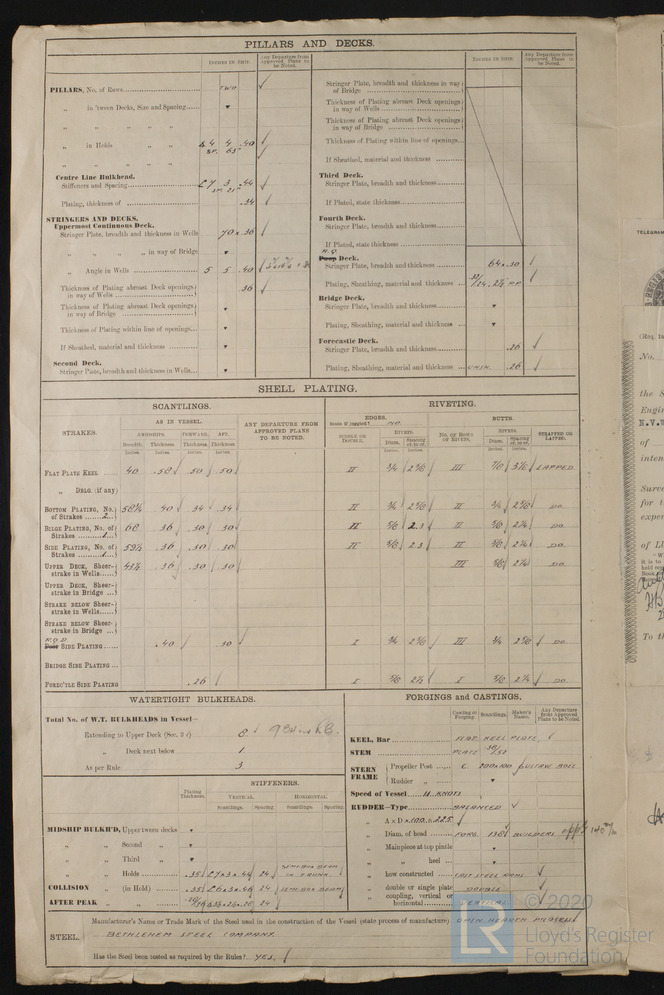 PILLARS AND DECKS.
INCHES IN SHIP.
Any Departure from Approved Plans to be Noted.
PILLARS, No. of Rows TWO
„ in 'tween Decks, Size and Spacing
„ „ „ „ „
„ in Holds „ „ 4 4 .40
„ „ „ „ „
Centre Line Bulkhead.
Stiffeners and Spacing 7 3 .44
Plating, thickness of .34
STRINGERS AND DECKS.
Uppermost Continuous Deck.
Stringer Plate, breadth and thickness in Wells 70 x .36
„ „ „ „ in way of Bridge
„ Angle in Wells 5 5 .40
Thickness of Plating abreast Deck openings in way of Wells .36
Thickness of Plating abreast Deck openings in way of Bridge
Thickness of Plating within line of openings
If Sheathed, material and thickness
Second Deck.
Stringer Plate, breadth and thickness in Wells
INCHES IN SHIP.
Any Departure from Approved Plans to be Noted.
Stringer Plate, breadth and thickness in way of Bridge
Thickness of Plating abreast Deck openings in way of Wells
Thickness of Plating abreast Deck openings in way of Bridge
Thickness of Plating within line of openings
If Sheathed, material and thickness
Third Deck.
Stringer Plate, breadth and thickness
If Plated, state thickness
Fourth Deck.
Stringer Plate, breadth and thickness
If Plated, state thickness
R.Q.
Poop Deck.
Stringer Plate, breadth and thickness 64 x .30
Plating, Sheathing, material and thickness
Bridge Deck.
Stringer Plate, breadth and thickness
Plating, Sheathing, material and thickness
Forecastle Deck.
Stringer Plate, breadth and thickness .26
Plating, Sheathing, material and thickness UNSH. .26
SHELL PLATING.
SCANTLINGS.
RIVETING.
STRAKES.
AS IN VESSEL.
AMIDSHIPS.
FORWARD.
AFT.
Breadth. Thickness. Thickness. Thickness.
Inches. Inches. Inches. Inches.
ANY DEPARTURE FROM APPROVED PLANS TO BE NOTED.
EDGES.
State if joggled? NO
SINGLE OR DOUBLE.
RIVETS.
Diam.
Inches. Inches.
BUTTS.
NO. OF ROWS OF RIVETS.
RIVETS.
Diam.
Inches. Inches.
STRAPPED OR LAPPED.
FLAT PLATE KEEL 40 .58 .50 .50 II 3/4 III 7/8 LAPPED
„ DBLG. (if any)
BOTTOM PLATING, No. of Strakes 2 .40 .34 .34 II 3/4 II 3/4 DO
BILGE PLATING, No. of Strakes 1 68 .36 .30 .30 II 5/8 2.3 II 5/8 2 1/4 DO
SIDE PLATING, No. of Strakes 1 59 1/2 .36 .30 .30 II 5/8 2.3 II 5/8 2 1/4 DO
UPPER DECK, Sheerstrake in Wells .36 .30 .30 III 5/8 2 1/4 DO
UPPER DECK, Sheerstrake in Bridge
STRAKE BELOW Sheerstrake in Wells
STRAKE BELOW Sheerstrake in Bridge
R.Q.D.
POOP SIDE PLATING .40 .30 I 3/4 III 3/4 DO
BRIDGE SIDE PLATING
FORE'TLE SIDE PLATING .26 I 5/8 I 5/8 2 1/4 DO
WATERTIGHT BULKHEADS.
Total No. of W.T. BULKHEADS in Vessel—
Extending to Upper Deck (Sec. 3 c) 8
„ Deck next below 1
As per Rule 5
STIFFENERS.
Plating Thickness.
VERTICAL.
HORIZONTAL.
Scantlings. Spacing. Scantlings. Spacing.
MIDSHIP BULKH'D, Upper tween decks
„ „ Second „
„ „ Third „
„ „ Holds .35 7 x 3 x .44 24 SEMI-BOX BEAM IN TRUNK
COLLISION „ (in Hold) .35 6 x 3 x .46 24 SEMI-BOX BEAM
AFTER PEAK „ „ 24
FORGINGS and CASTINGS.
Casting or Forging.
Scantlings.
Maker's Name.
Any Departure from Approved Plans to be Noted.
KEEL, Bar FLAT KEEL PLATE
STEM PLATE
STERN FRAME
Propeller Post C 200 x 100
Rudder „
Speed of Vessel 11 KNOTS
RUDDER—Type BALANCED
„ A x D x 100
„ Diam. of head FORG. 138 BUILDERS
„ Mainpiece at top pintle
„ „ heel
„ how constructed CAST STEEL
„ double or single plate DOUBLE
„ coupling, vertical or horizontal VERTICAL
STEEL.
Manufacturer's Name or Trade Mark of the Steel used in the construction of the Vessel (state process of manufacture) OPEN HEARTH PROCESS
BETHLEHEM STEEL COMPANY
Has the Steel been tested as required by the Rules? YES.
© 2020
Lloyd's Register
Foundation
LR
TELEGRAM
No.
the S
Engin
N.V.
of
inten
Surve
for t
exper
of L
To th